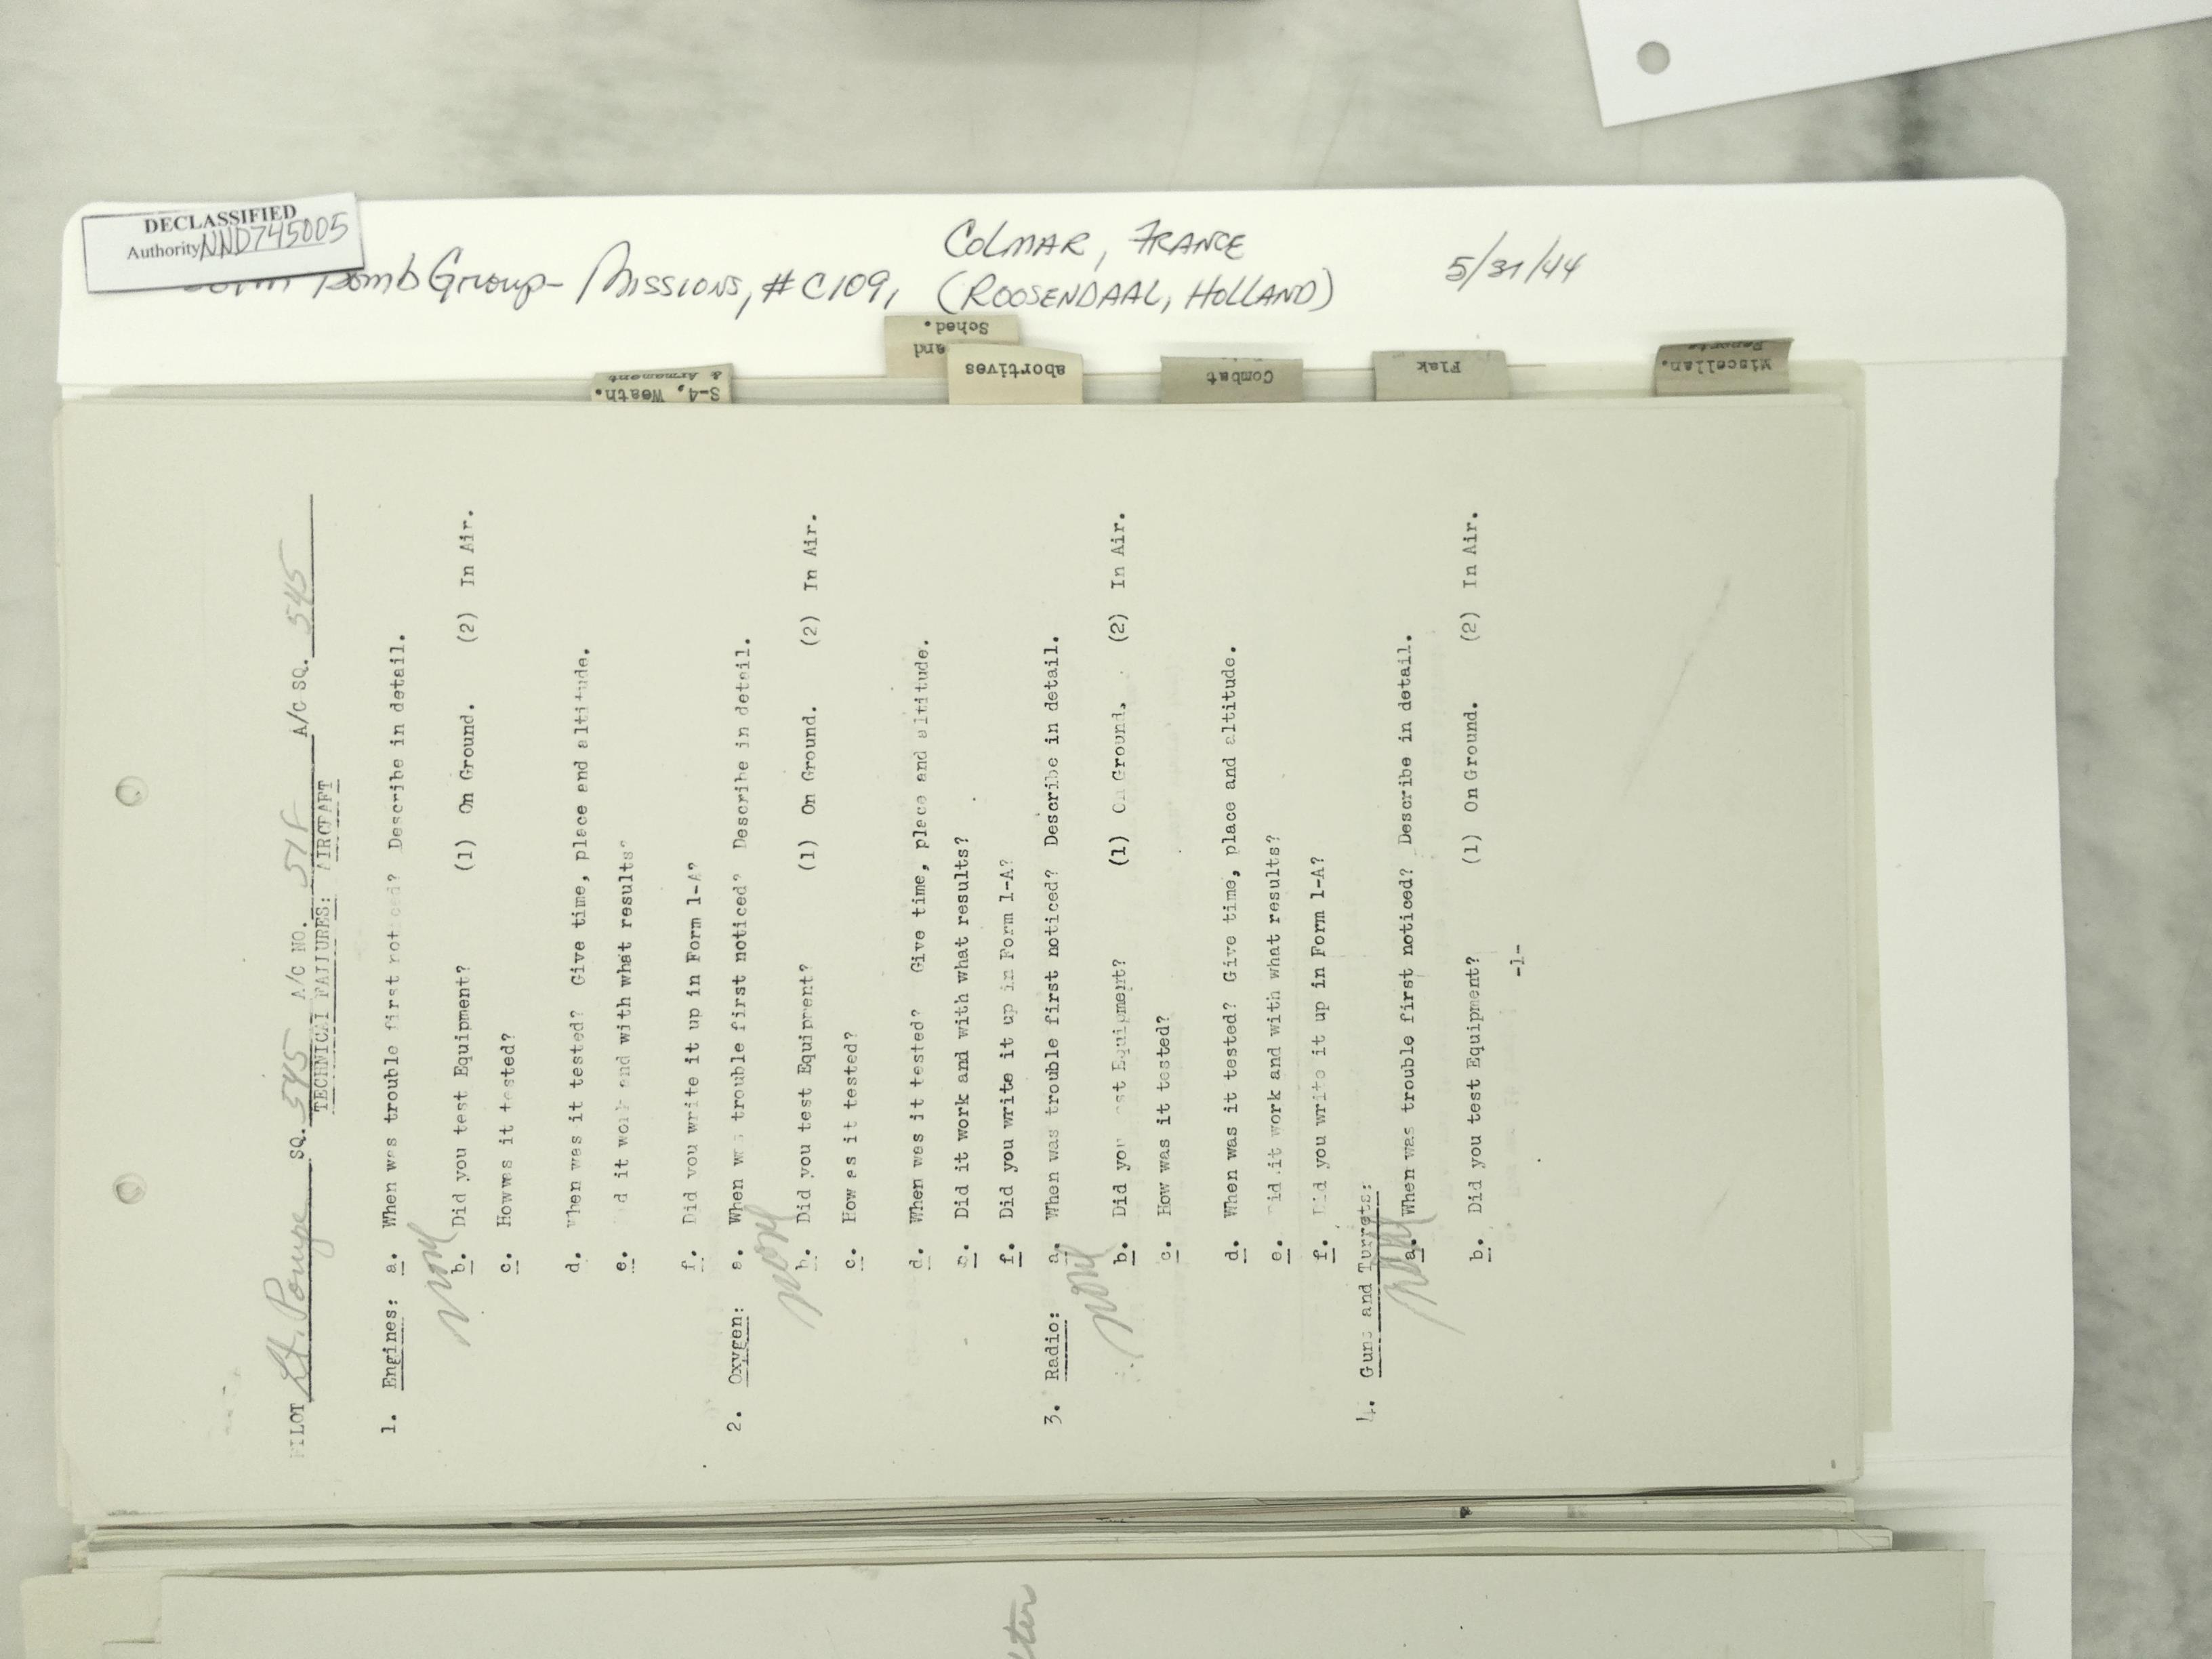 DECLASSIFIED
Authority NND745005
Bomb Group- Missions, #C109,
COLMAR, FRANCE
(ROOSENDAAL, HOLLAND)
5/31/44
S-4, Weath.
& Armament
and
Sched.
abortives
Combat
Flak
Miscellan.
Reports
PILOT Lt. SQ. 545 A/C NO. 511 A/C SQ. 545
TECHNICAL FAILURES: AIRCRAFT
1. Engines: a. When was trouble first noticed? Describe in detail.
b. Did you test Equipment? (1) On Ground. (2) In Air.
c. Howwas it tested?
d. When was it tested? Give time, place and altitude.
e. d it work and with what results?
f. Did you write it up in Form 1-A?
2. Oxygen: a. When was trouble first noticed? Describe in detail.
b. Did you test Equipment? (1) On Ground. (2) In Air.
c. How as it tested?
d. When was it tested? Give time, place and altitude.
e. Did it work and with what results?
f. Did you write it up in Form 1-A?
3. Radio: a. When was trouble first noticed? Describe in detail.
b. Did you test Equipment? (1) On Ground. (2) In Air.
c. How was it tested?
d. When was it tested? Give time, place and altitude.
e. Did it work and with what results?
f. Did you write it up in Form 1-A?
4. Guns and Turrets:
a. When was trouble first noticed? Describe in detail.
b. Did you test Equipment? (1) On Ground. (2) In Air.
-1-